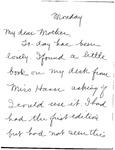 Monday
My dear Mother
To day has been
lovely I found a little
book on my desk from
Miss Hanse asking if
I could use it. I had
had the first edition
but had not seen this